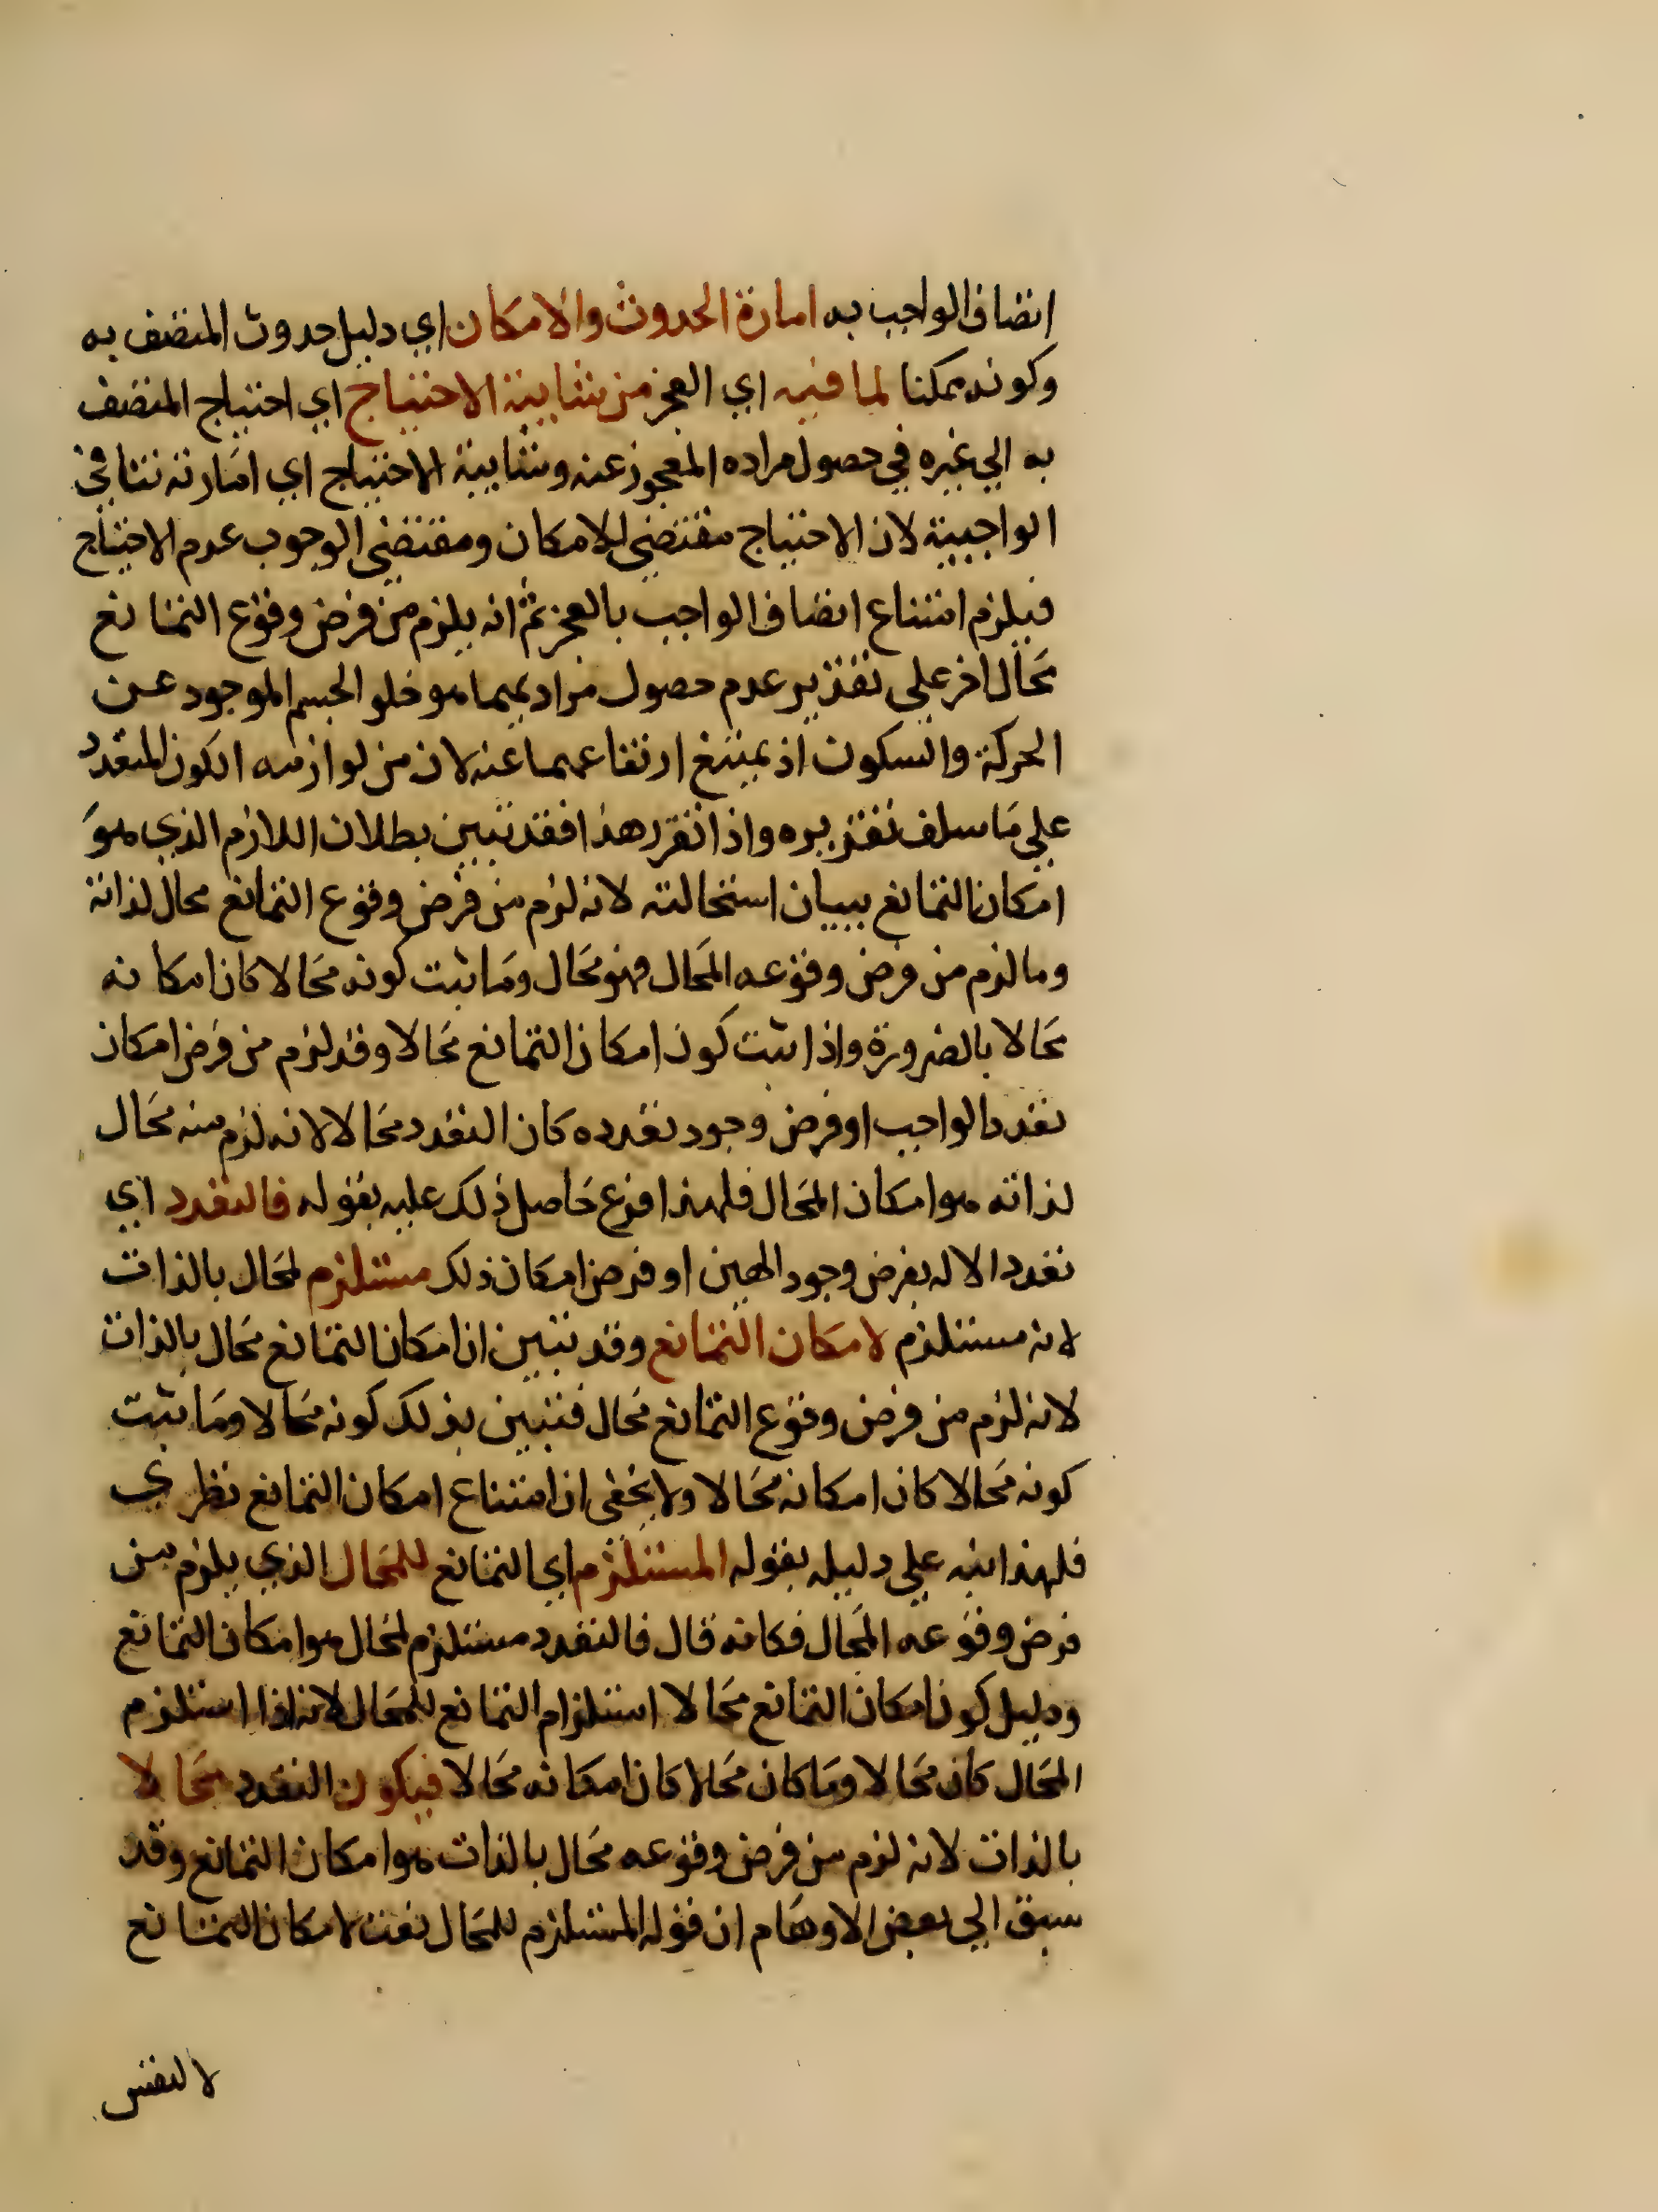 اتصاف الواجب به امارة الحدوث والامكان اي دليل حدوث المتصف به
وكونه ممكنا لما فيه اي العجز من شايبة الاحتياج اي احتياج المتصف
به الي غيره في حصول مراده المعجوز عنه وشايبة الاحتياج اي امارته تنافي
الواجبية لان الاحتياج مقتضي الامكان ومقتضي الوجوب عدم الاحتياج
فيلزم امتناع اتصاف الواجب بالعجز ثم انه يلزم من فرض وقوع التمانع
محال اخر علي تقدير عدم حصول مراديهما هو خلو الجسم الموجود عن
الحركة والسكون اذ يمتنع ارتفاعهما عنه لان من لوازمه الكون المتعدد
علي ما سلف تقريره واذا تقرر هذا فقد تبين بطلان اللازم الذي هو
امكان التمانع ببيان استحالته لانه لزم من فرض وقوع التمانع محال لذاته
وما لزم من فرض وقوعه المحال فهو محال وما ثبت كونه محالا كان امكانه
محالا بالضرورة واذا ثبت كون امكان التمانع محالا وقد لزم من فرض امكان
تعدد الواجب او فرض وجود تعدده كان التعدد محالا لانه لزم منه محال
لذاته هو امكان المحال فلهذا فرع حاصل ذلك عليه بقوله فالتعدد اي
تعدد الاله بفرض وجود الهين او فرض امكان ذلك مستلزم لمحال بالذات
لانه مستلزم لامكان التمانع وقد تبين ان امكان التمانع محال بالذات
لانه لزم من فرض وقوع التمانع محال فتبين بذلك كونه محالا وما ثبت
كونه محالا كان امكانه محالا ولا يخفى ان امتناع امكان التمانع نظري
فلهذا نبه علي دليله بقوله المستلزم اي التمانع للمحال الذي يلزم من
فرض وقوعه المحال فكانه قال فالتعدد مستلزم لمحال هو امكان التمانع
ودليل كون امكان التمانع محالا استلزام التمانع للمحال لانه اذا استلزم
المحال كان محالا وما كان محالا كان امكانه محالا فيكون التعدد محالا
بالذات لانه لزم من فرض وقوعه محال بالذات هو امكان التمانع وقد
سبق الي بعض الاوهام ان قوله المستلزم للمحال نعت لامكان التمانع
لا لنفس